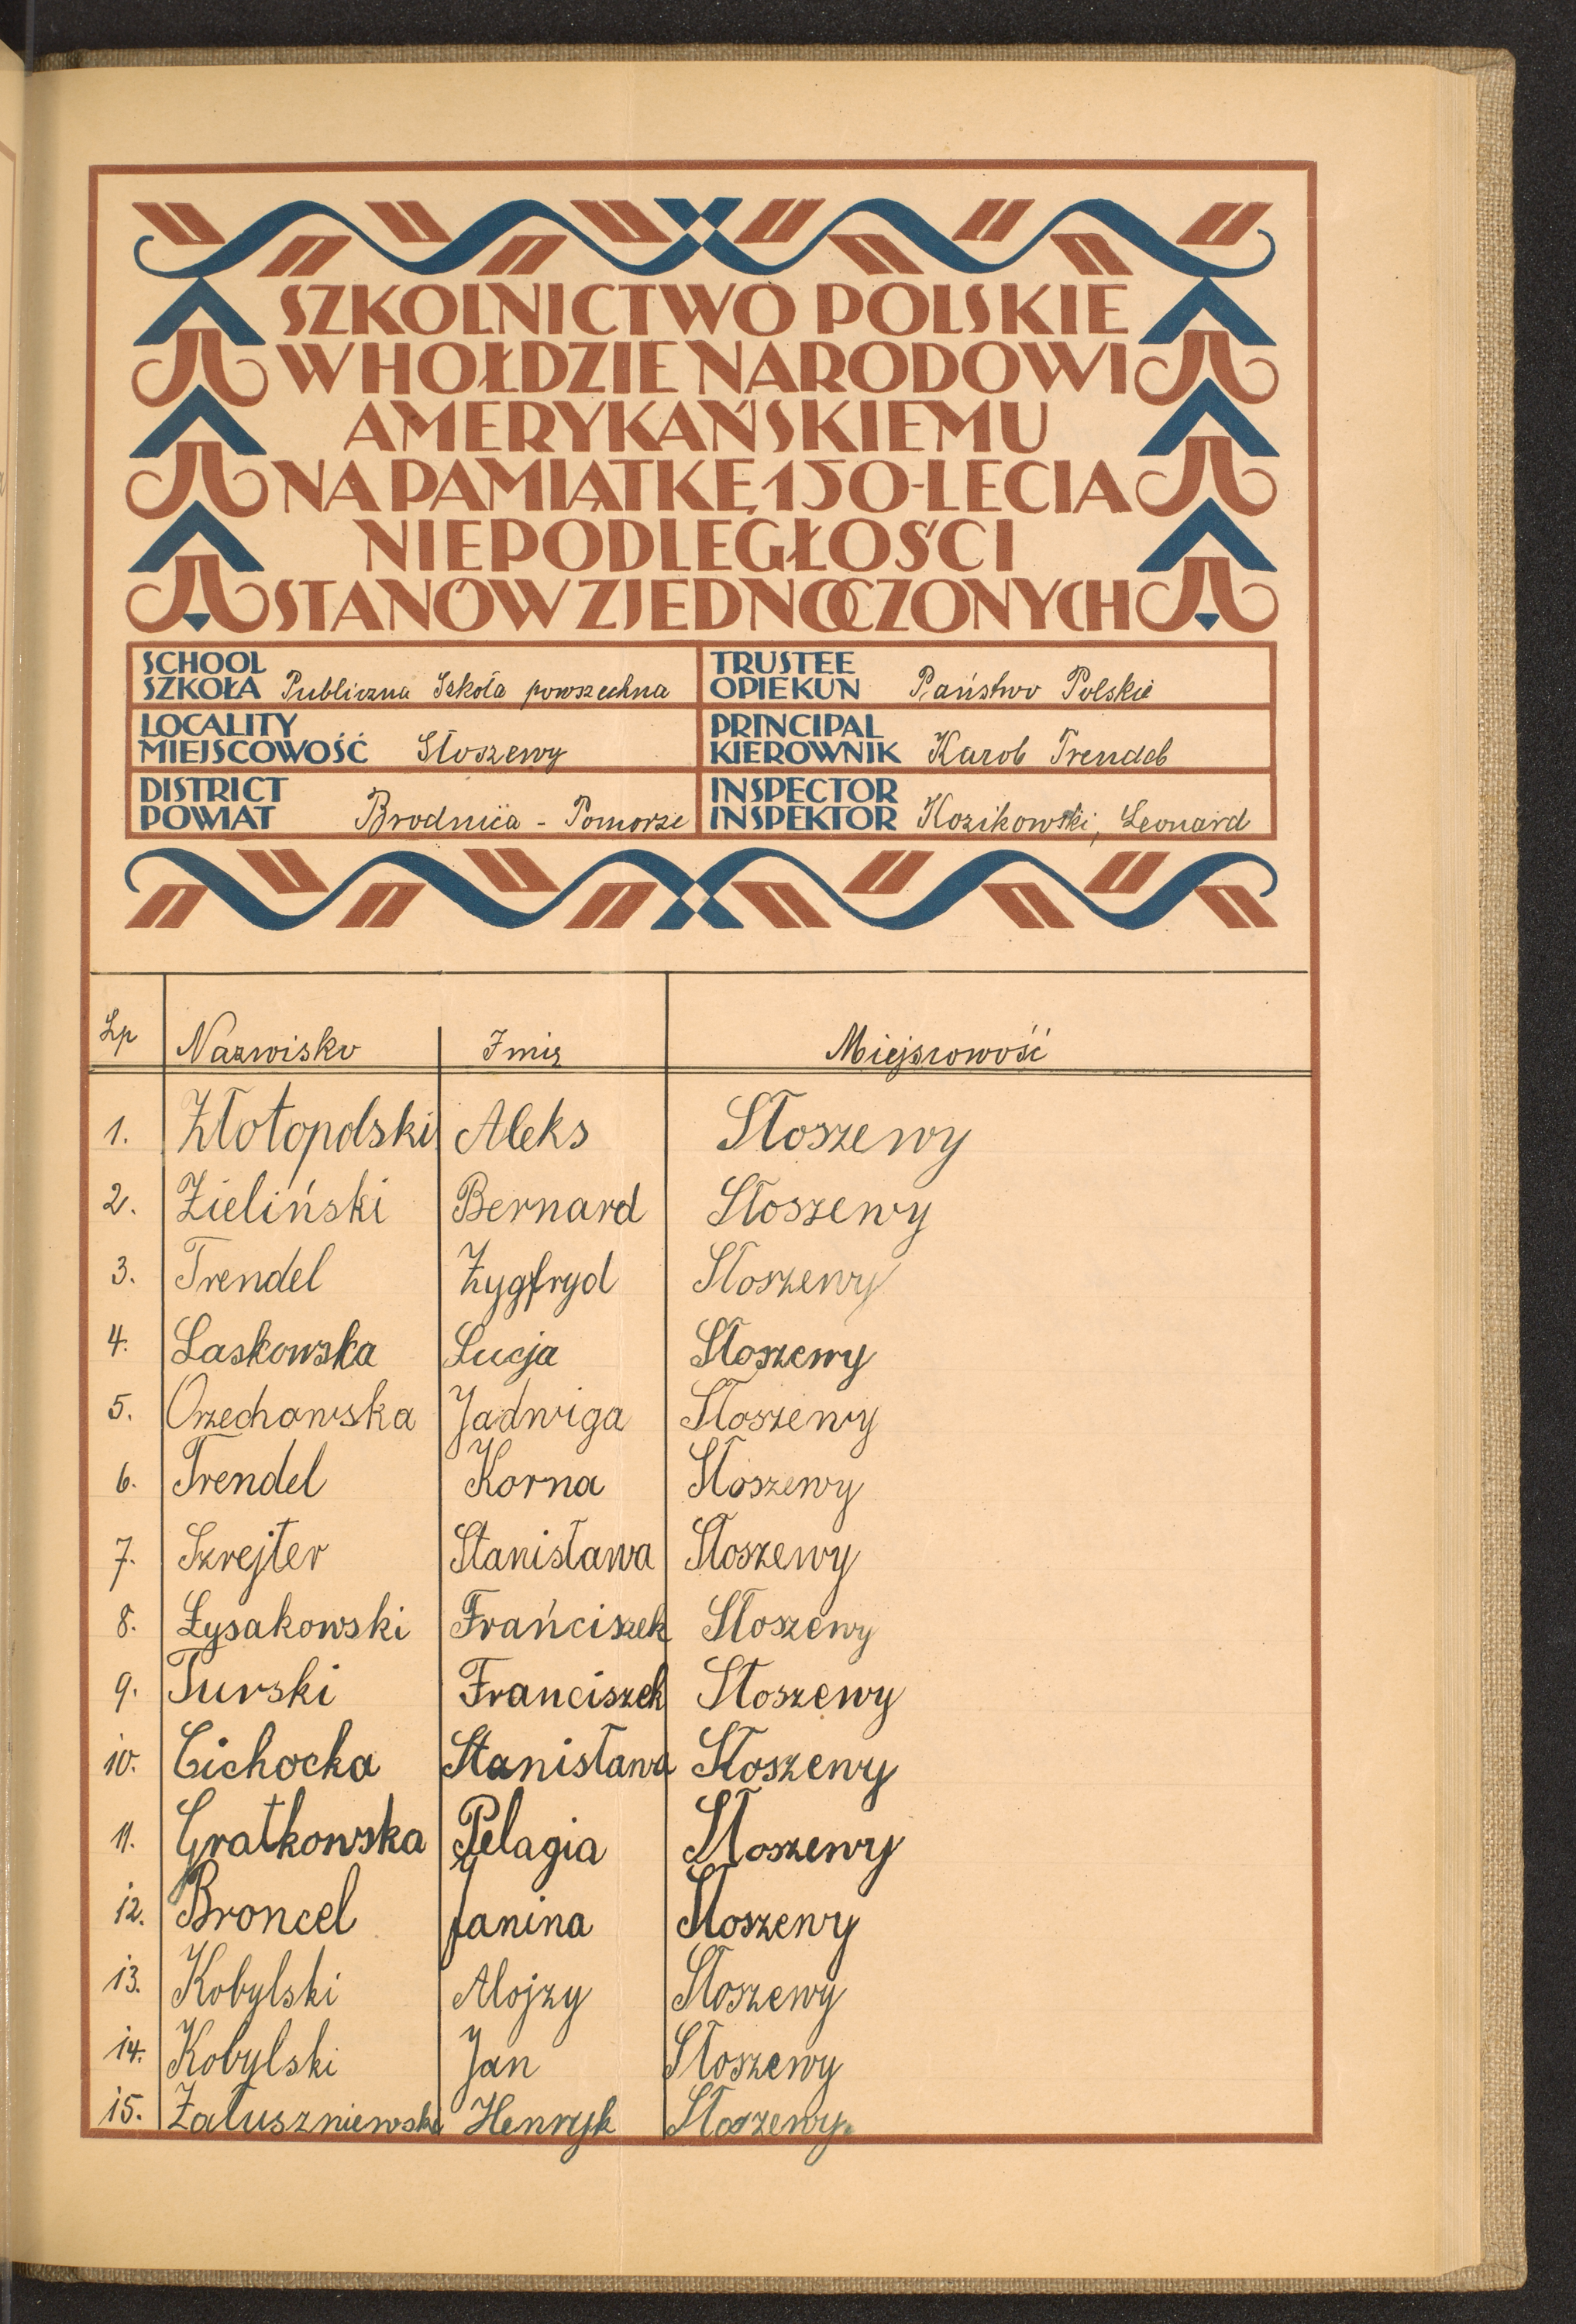 SZKOLNICTWO POLSKIE
W HOŁDZIE NARODOWI
AMERYKAŃSKIEMU
NA PAMIĄTKĘ 150-LECIA
NIEPODLEGŁOŚCI
STANÓW ZJEDNOCZONYCH
SCHOOL
SZKOŁA Publiczna Szkoła powszechna
TRUSTEE
OPIEKUN Państwo Polskie
LOCALITY
MIEJSCOWOŚĆ Słoszewy
PRINCIPAL
KIEROWNIK Karol Trendel
DISTRICT
POWIAT Brodnica - Pomorze
INSPECTOR
INSPEKTOR Kozikowski, Leonard
Lp Nazwisko Imię Miejscowość
1. Złotopolski Aleks Słoszewy
2. Zieliński Bernard Słoszewy
3. Trendel Zygfryd Słoszewy
4. Laskowska Łucja Słoszewy
5. Orzechowska Jadwiga Słoszewy
6. Trendel Korna Słoszewy
7. Szrejter Stanisława Słoszewy
8. Łysakowski Frańciszek Słoszewy
9. Turski Franciszek Słoszewy
10. Cichocka Stanisława Słoszewy
11. Gratkowska Pelagia Słoszewy
12. Broncel Janina Słoszewy
13. Kobylski Alojzy Słoszewy
14. Kobylski Jan Słoszewy
15. Załuszniewski Henryk Słoszewy.